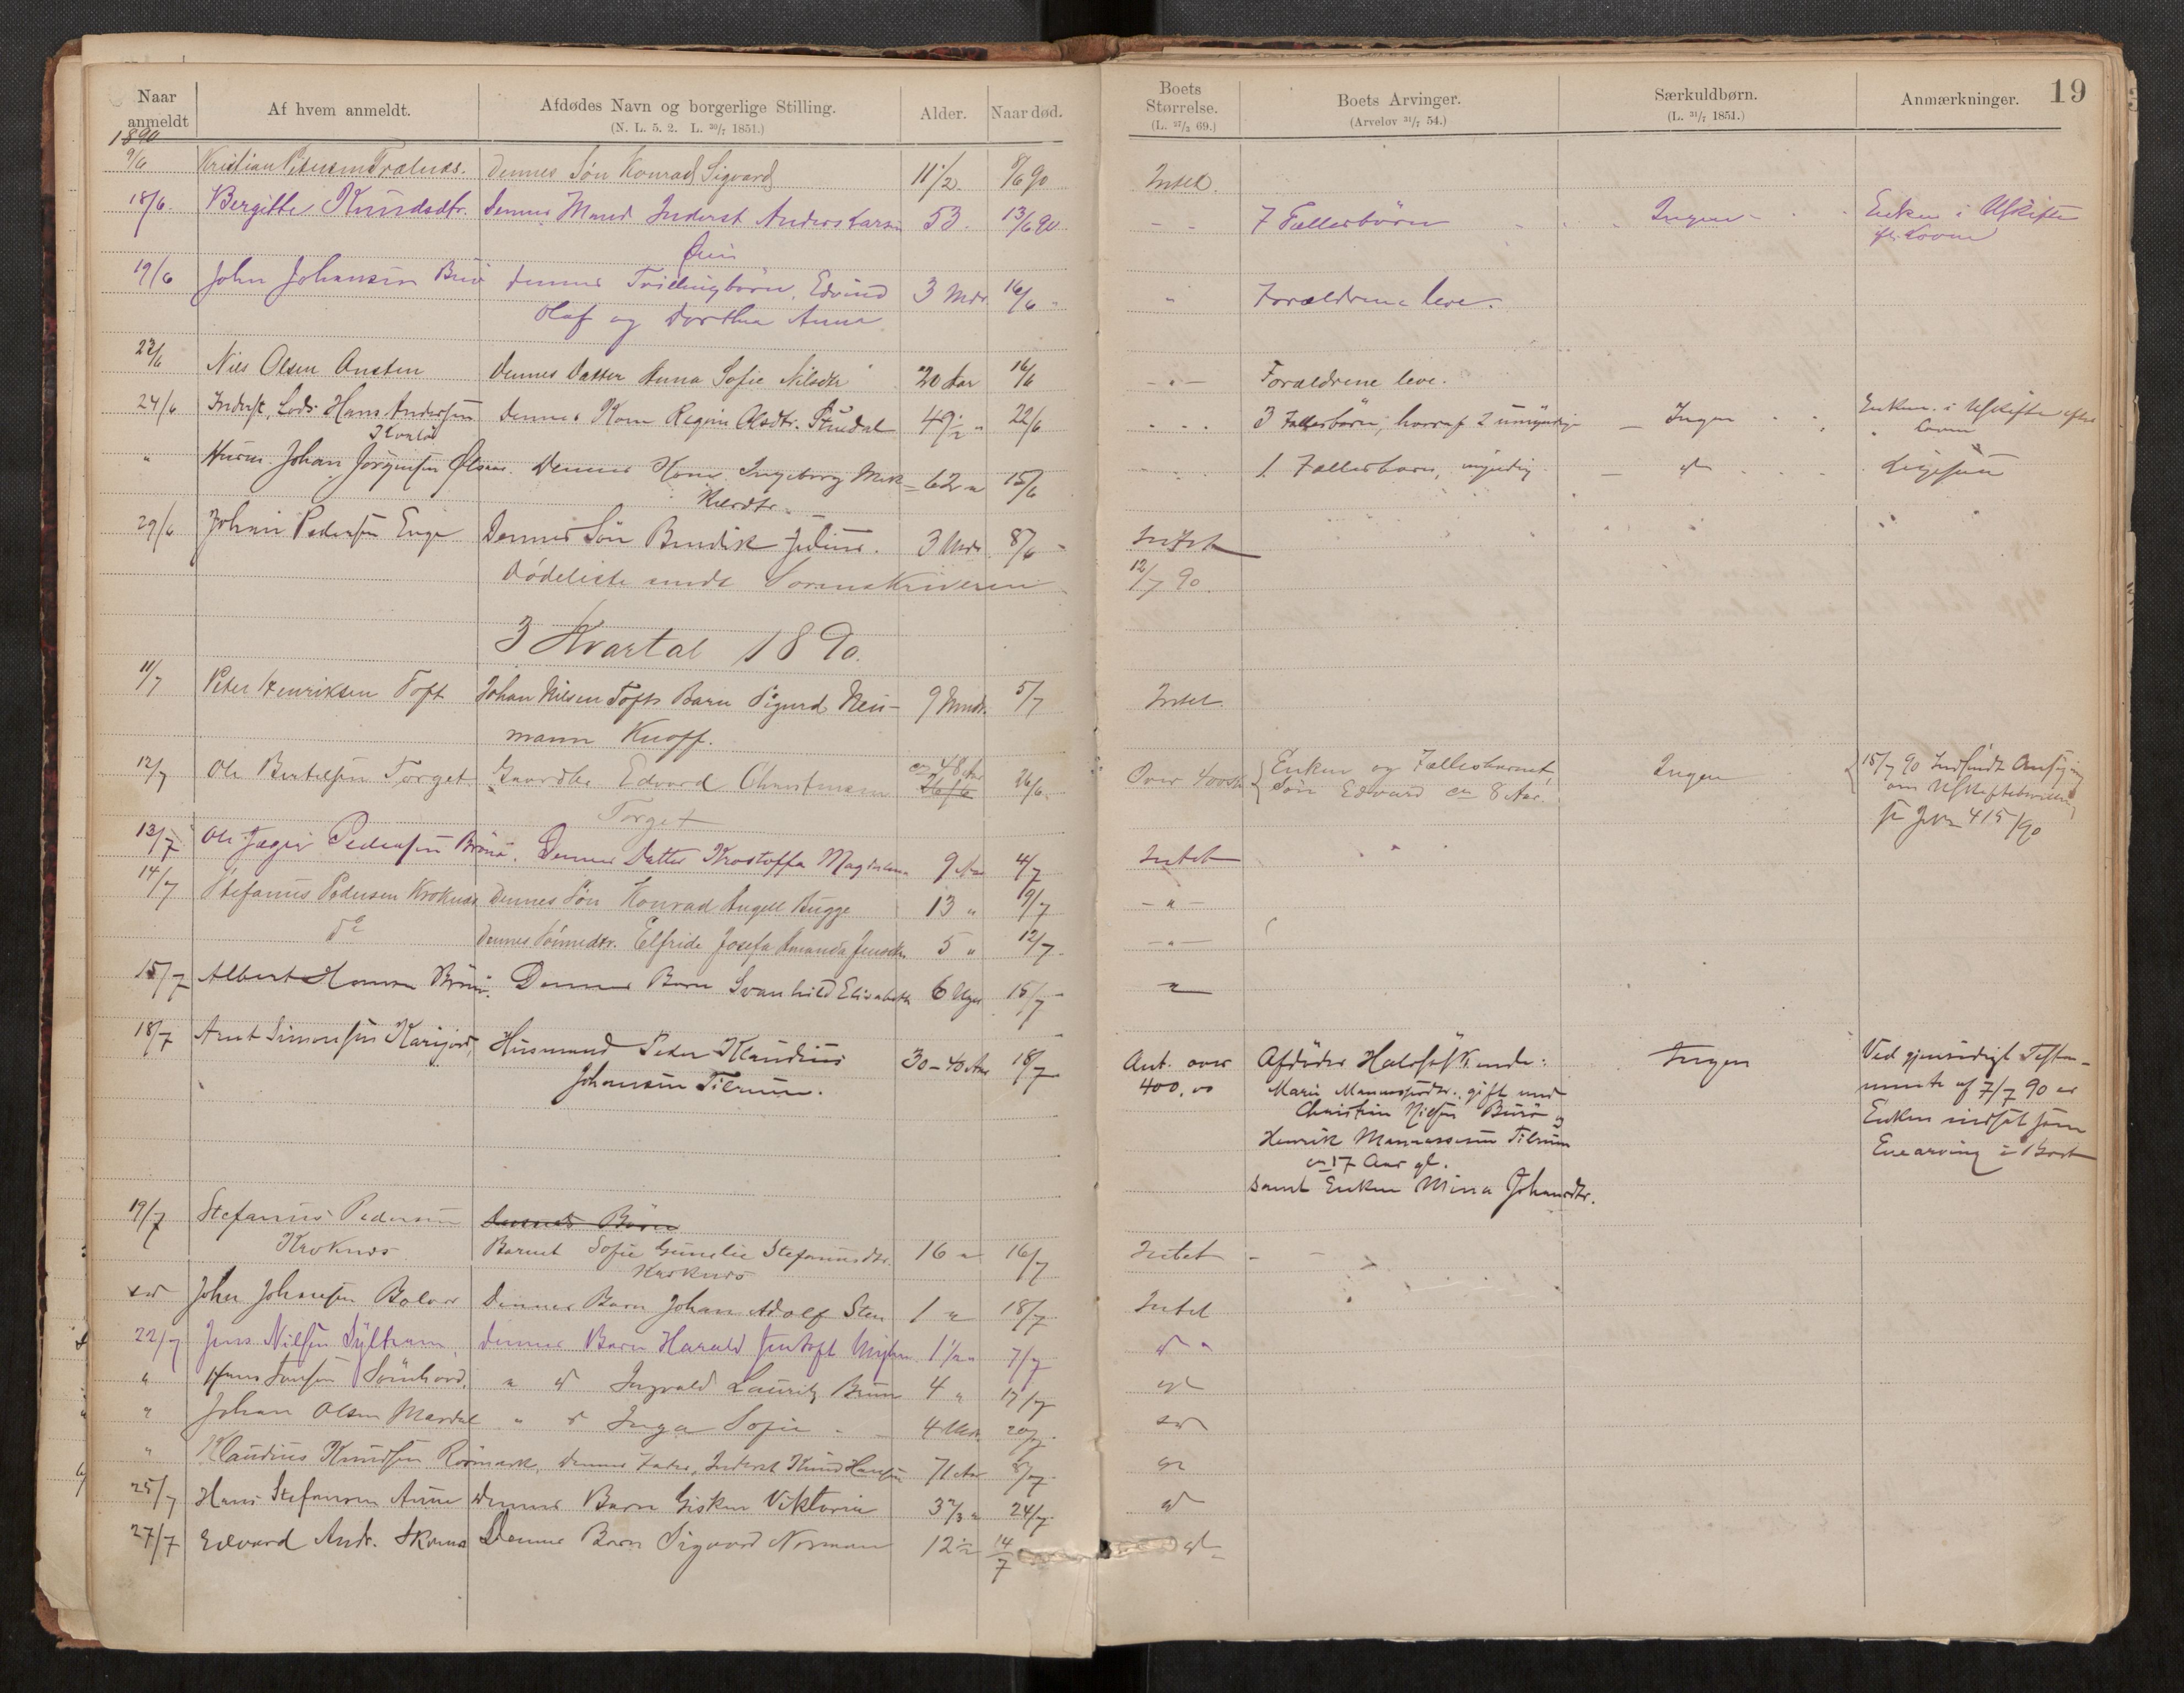 Naar anmeldt
Af hvem anmeldt.
Afdødes Navn og borgerlige Stilling.
(N. L. 5. 2. L. 30/7 1851.)
Alder.
Naar død.
Boets Størrelse.
(L. 27/3 69.)
Boets Arvinger.
(Arvelov 31/7 54.)
Særkuldbørn.
(L. 31/7 1851.)
Anmærkninger.
19
1890
9/6 Kristian Petersen Trælnæs. Dennes Søn Konrad Sigvard 11 1/2. 8/6 90 Intet.
18/6. Bergitte Knudsdtr. Dennes Mand Inderst Anders Larsen 53. 13/6 90 - - 7 Fællesbørn Ingen Enken i Uskifte
efter Loven
19/6 John Johansen dennes Tvillingbørn, Edvind 3 Mdr 16/6 " " Forældrene leve.
Olaf og Dorthea Anna
23/6 Nils Olsen Dennes Datter Anna Sofie Nilsdtr 20 Aar 16/6 - " - Forældrene leve.
24/6 Inderst, Lods Hans Andersen Dennes Kone Regine Olsdtr. 49 1/2 " 22/6 3 Fællesbørn, hvoraf 2 umyndige Ingen Enken i Uskifte efter
Loven
" Husm. Johan Jørgensen Dennes Kone Ingeborg 62 " 15/6 1 Fællesbarn, myndig do Ligesaa
29/6 Johan Pedersen Enge Dennes Søn Bendik Julius. 3 Mdr 8/6 " Intet
Dødeliste sendt Sorenskriveren 12/7 90.
3 Kvartal 1890.
11/7 Peter Henriksen Toft Johan Nilsen Tofts Barn Sigurd Neu- 9 Mndr. 5/7 Intet
mann Knoff.
12/7 Ole Bertelsen Torget Gaardbr Edvard Christensen ca 48 Aar 26/6. Over 400 Enken og Fællesbarnet, Ingen 15/7 90 Indsendt Ansøgning
Søn Edvard ca 8 Aar. om Uskiftebevilling
Torget 415/90
13/7 Ole Jæger Pedersen Brønø. Dennes Datter Kristoffa Magdalena 9 Aar 4/7 Intet
14/7 Stefanus Pedersen Kroknæs Dennes Søn Konrad Angell Bugge 13 " 9/7 - " -
do Dennes Sønnedtr. Elfride Josefa Amanda Jensdtr. 5 " 12/7 - " -
15/7 Albert Hansen Brønø. Dennes Barn Svanhild Elisabeth 6 Uger 15/7 "
18/7 Arnt Simonsen Husmand Peder Klaudius 30-40 Aar 18/7 Ant. over Afdødes Halvsøskende: Ingen Ved gjensidigt Testa-
Johansen Tilrem. 400,00 Marie gift med mente af 7/7 90 er
Christian Nielsen og Enken indsat som
Henrik Manassesen Tilrem Enearving i Boet
ca 17 Aar gl.
samt Enken Mina Johansdtr.
19/7 Stefanus Pedersen Dennes Barn
Kroknæs Barnet Sofie Stefanusdtr. 16 " 16/7 Intet
Kroknæs
do Johan Johnsen Dennes Barn Johan Adolf Sten 1 " 18/7 Intet
22/7 Jens Nilsen dennes Barn Harald 1 1/2 " 7/7 do "
" Hans Jensen " do Ingvald Lauritz Brun 4 " 17/7 do
" Johan Olsen Mardal " do Inga Sofie 4 Mdr. 20/7. do
" Klaudius Knudsen Rørmark, dennes Fader, Inderst Knud Hansen 71 Aar do
25/7 Hans Stefansen Aune Dennes Barn Gisken Viktoria 3 2/3 " 24/7. do
27/7 Edvard Andr. Dennes Barn Sigvard Norman 12 1/2 14/7 do